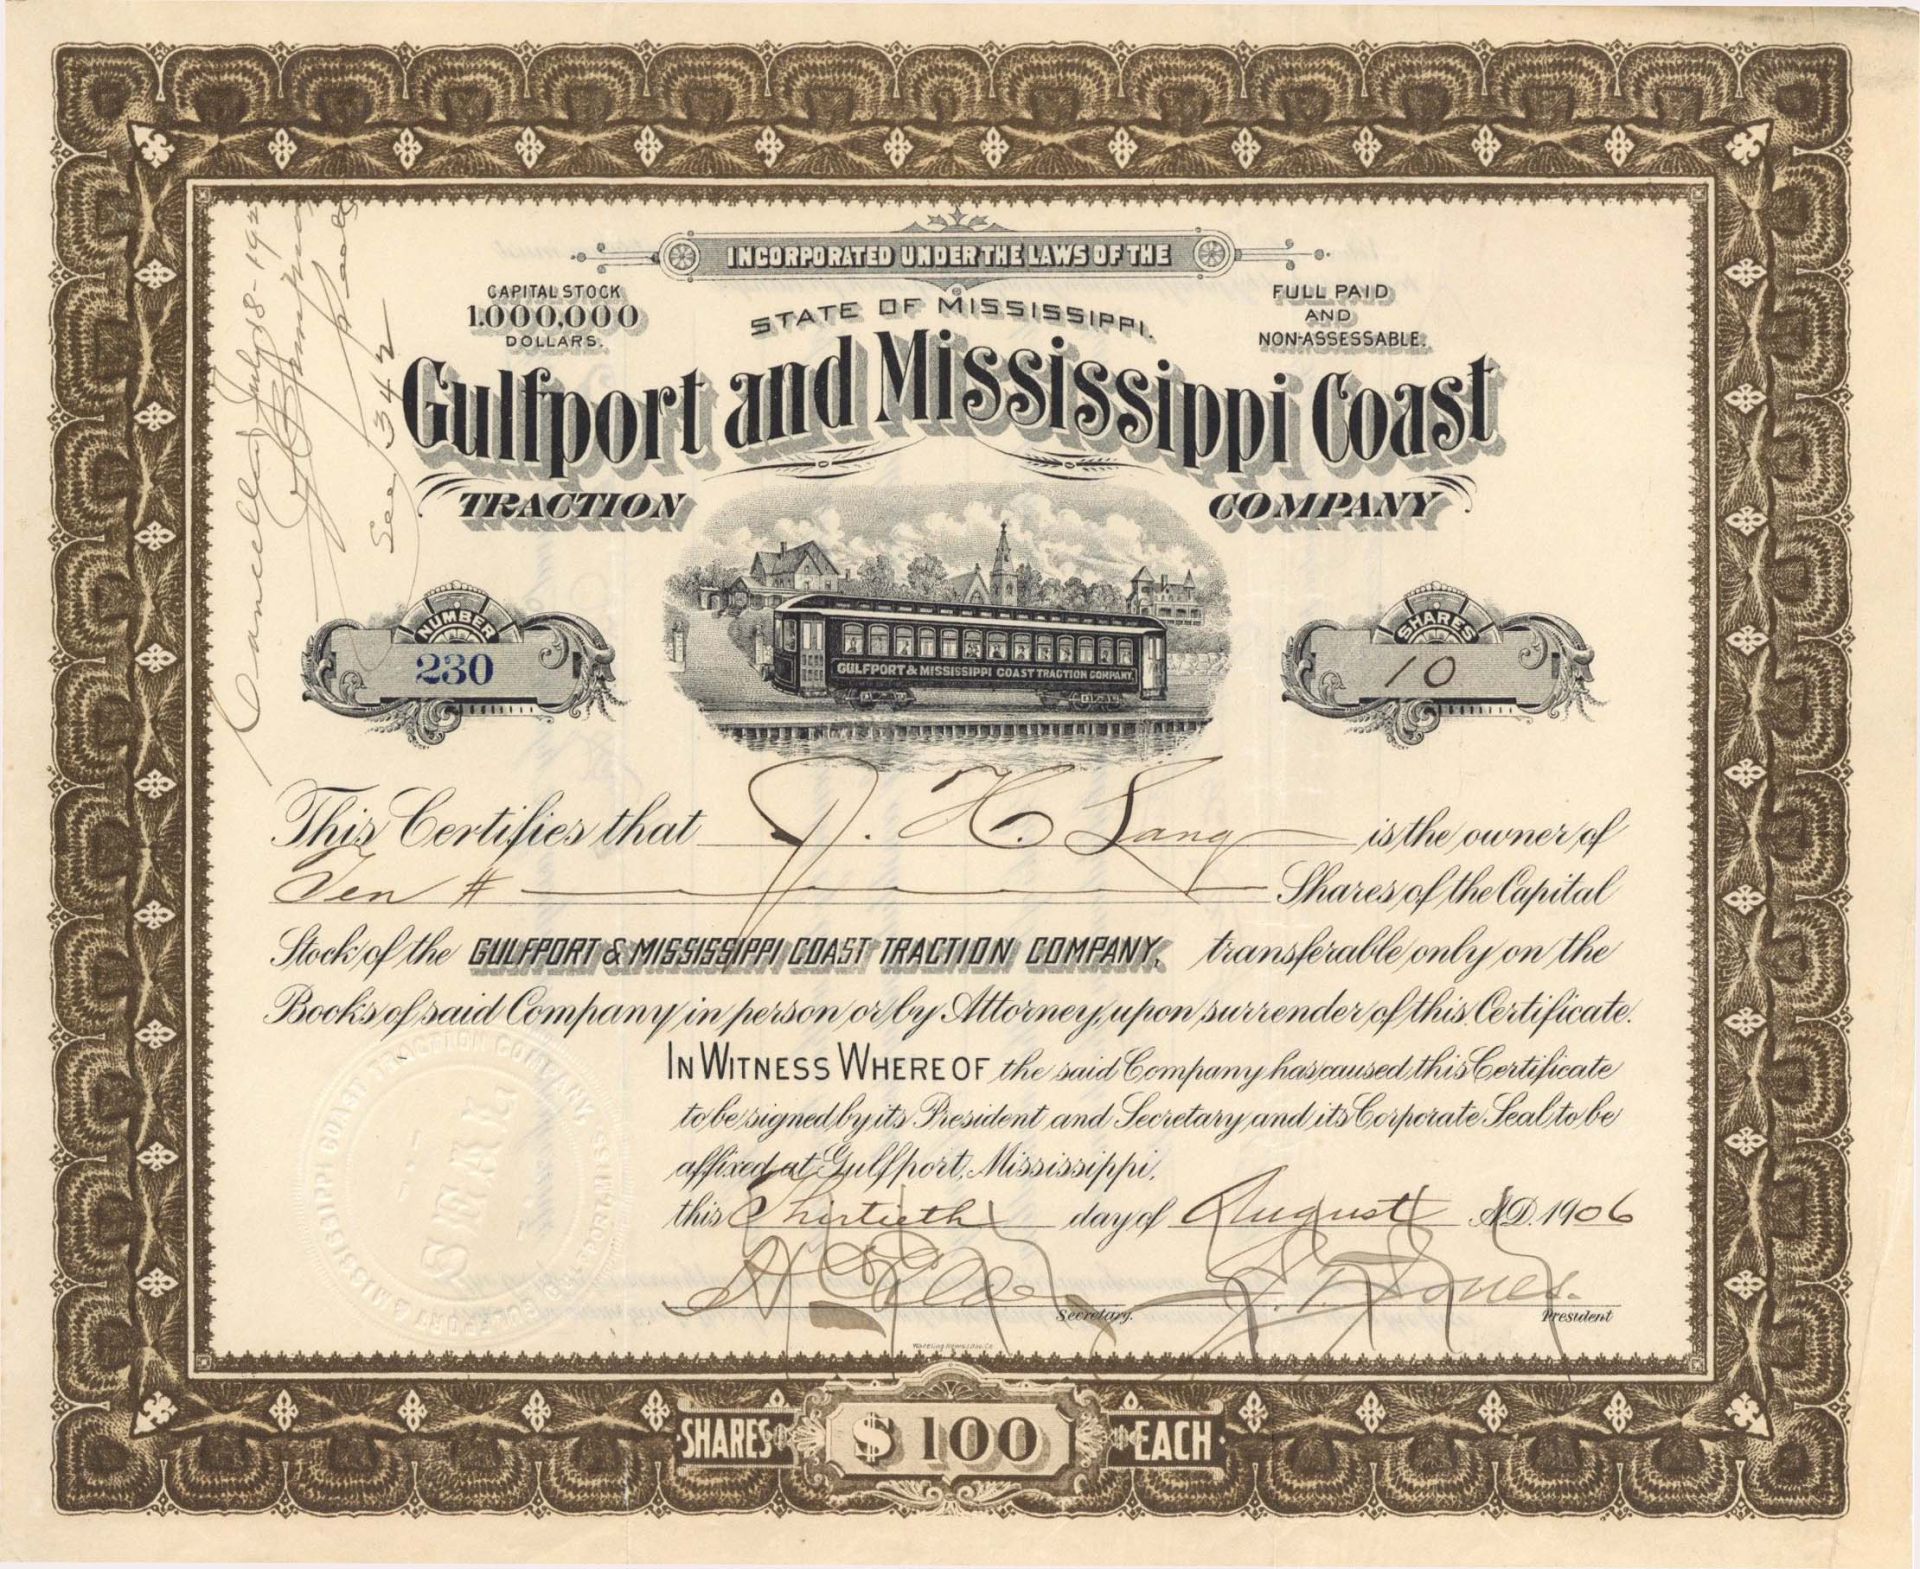 INCORPORATED UNDER THE LAWS OF THE
STATE OF MISSISSIPPI.
CAPITAL STOCK
1.000,000
DOLLARS.
FULL PAID
AND
NON-ASSESSABLE.
Gulfport and Mississippi Coast
TRACTION COMPANY
Cancelled July 18-192
See 342
NUMBER
230
GULFPORT & MISSISSIPPI COAST TRACTION COMPANY.
SHARES
10
This Certifies that J. H. Lang is the owner of
Ten # Shares of the Capital
Stock of the GULFPORT & MISSISSIPPI COAST TRACTION COMPANY, transferable only on the
Books of said Company in person or by Attorney, upon surrender of this Certificate.
IN WITNESS WHEREOF the said Company has caused this Certificate
to be signed by its President and Secretary and its Corporate Seal to be
affixed at Gulfport, Mississippi,
this Thirtieth day of August A.D. 1906
J. T. Jones.
Secretary. President
GULFPORT & MISSISSIPPI COAST TRACTION COMPANY,
SEAL
SHARES $100 EACH